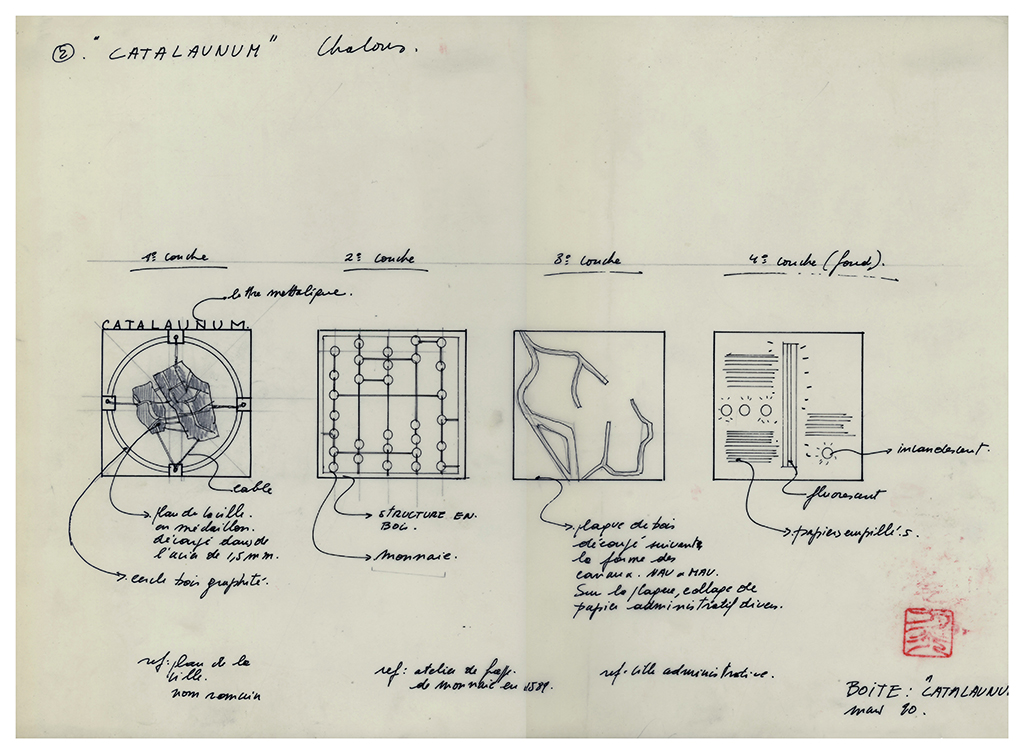 2. "CATALAUNUM" Chalons.
1e couche
2e couche
3e couche
4e couche (fond).
lettre mettalique.
CATALAUNUM.
incandescent.
cable
fluorescent
plan de la ville.
en médaillon.
découpé dans de
l'acier de 1,5 mm.
cercle bois graphité.
STRUCTURE EN.
BOIS.
monnaie.
plaque de bois
découpé suivant
la forme des
canaux. NAU et MAU.
Sur la plaque, collage de
papier administratif divers.
papiers empillés.
ref: plan de la
ville.
nom romain
ref: atelier de
de monnaie en 1591.
ref: ville administrative.
BOITE: "CATALAUNU
mars 90.